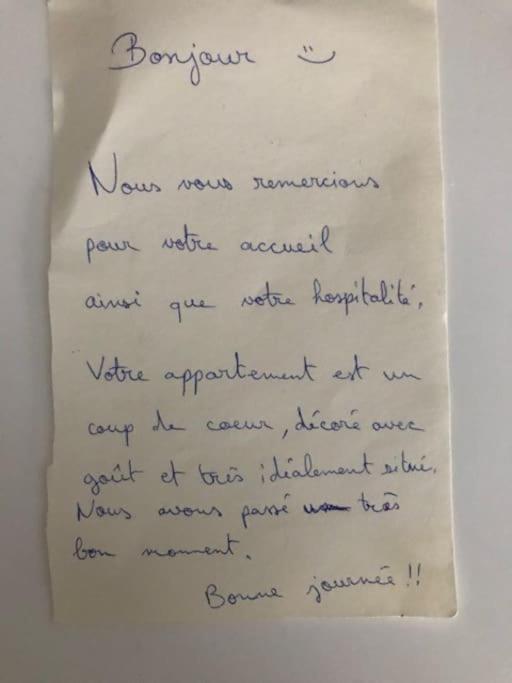 Bonjour
Nous vous remercions
pour votre accueil
ainsi que votre hospitalité.
Votre appartement est un
coup de coeur, décoré avec
goût et très idéalement situé.
Nous avons passé un très
bon moment.
Bonne journée !!